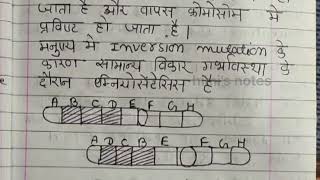 जाता है और वापस क्रोमोसोम में
प्रविष्ट हो जाता है।
मनुष्य में Inversion mutation के
कारण सामान्य विकार गर्भावस्था के
दौरान एम्नियोसेंटेसिस है
A B C D E F G H
A B C D E F G H